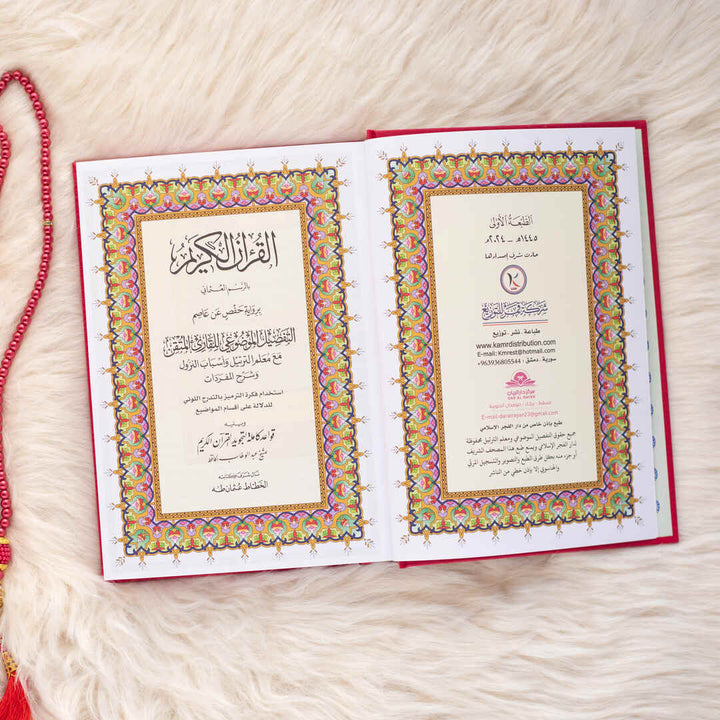 القرآن الكريم
بالرسم العثماني
برواية حفص عن عاصم
التفصيل الموضوعي للقارئ المتقن
مع معلم الترتيل وأسباب النزول
وشرح المفردات
استخدام فكرة الترميز بالتدرج اللوني
للدلالة على أقسام المواضيع
ويليه
قواعد كاملة لتجويد القرآن الكريم
نال شرف كتابته
الخطاط عثمان طه
الطبعة الأولى
١٤٤٥هـ - ٢٠٢٤م
حازت شرف إصدارها
شركة قمر للتوزيع
طباعة . نشر . توزيع
www.kamrdistribution.com
E-mail: Kmrest@hotmail.com
سورية . دمشق : 963936805544+
مركز دار الريان
DAR AL RAYAN
E-mail-dararrayan23@gmail.com
طبع بإذن خاص من دار الفجر الإسلامي
جميع حقوق التفصيل الموضوعي ومعلم الترتيل محفوظة
لدار الفجر الإسلامي ويمنع طبع هذا المصحف الشريف
أو جزء منه بكل طرق الطبع والتصوير والتسجيل المرئي
والحاسوبي إلا بإذن خطي من الناشر